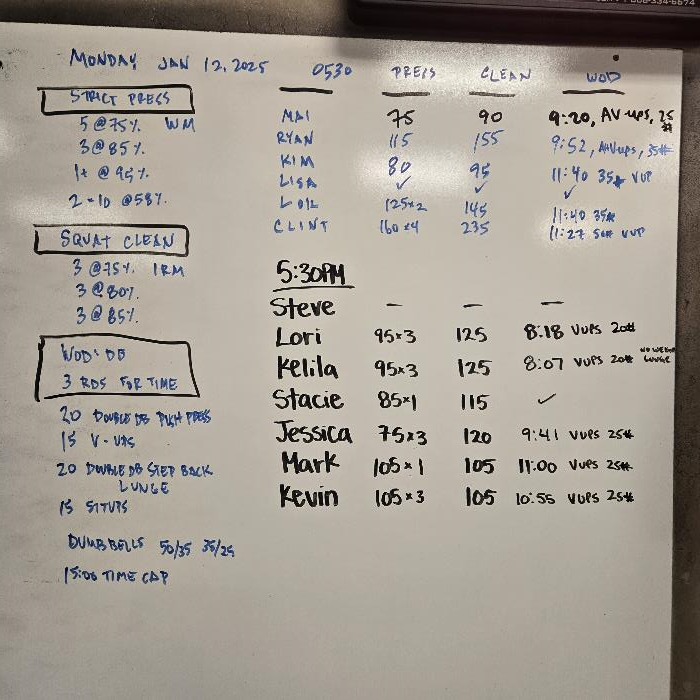 MONDAY JAN 12, 2025
STRICT PRESS
5 @ 75% WM
3 @ 85%
1+ @ 95%
2 × 10 @ 58%
SQUAT CLEAN
3 @ 75% 1RM
3 @ 80%
3 @ 85%
WOD: DB
3 RDS FOR TIME
20 DOUBLE DB PUSH PRESS
15 V-UPS
20 DOUBLE DB STEP BACK
LUNGE
15 SITUPS
DUMBBELLS 50/35 35/25
15:00 TIME CAP
0530 PRESS CLEAN WOD
MAI 75 90 9:20, AV-ups, 25#
RYAN 115 155 9:52, AV-ups, 35#
KIM 80 95 11:40 35# VUP
LISA ✓ ✓ ✓
125×2 145 11:40 35#
CLINT 160×4 235 11:27 50# VUP
5:30PM
Steve — — —
Lori 95×3 125 8:18 VUPS 20#
Kelila 95×3 125 8:07 VUPS 20# NO WEIGHT LUNGE
Stacie 85×1 115 ✓
Jessica 75×3 120 9:41 VUPS 25#
Mark 105×1 105 11:00 VUPS 25#
Kevin 105×3 105 10:55 VUPS 25#